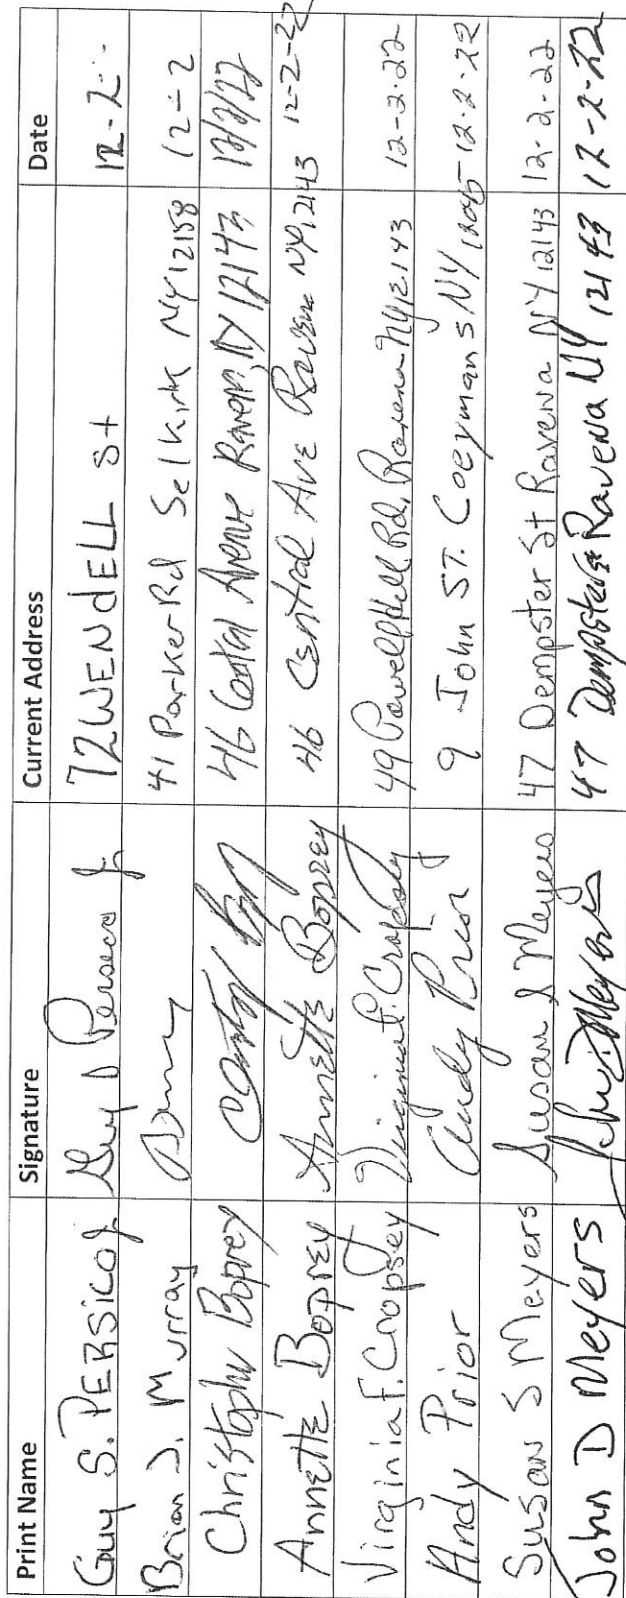 Print Name Signature Current Address Date
Guy S. PERSICO Jr Guy S Persico Jr 72 WENdELL St 12-2-
Brian J. Murray 41 Parker Rd Selkirk NY 12158 12-2
Christopher Boprey 46 Central Avenue Ravena, NY 12143 12/2/22
Annette Boprey Annette Boprey 46 Central Ave Ravena NY 12143 12-2-22
Virginia F. Cropsey Virginia F. Cropsey 49 Powell Hill Rd, Ravena NY 12143 12-2-22
Andy Prior Andy Prior 9 John ST. Coeymans NY 12045 12-2-22
Susan S Meyers Susan S Meyers 47 Dempster St Ravena NY 12143 12-2-22
John D Meyers John D Meyers 47 Dempster St Ravena NY 12143 12-2-22